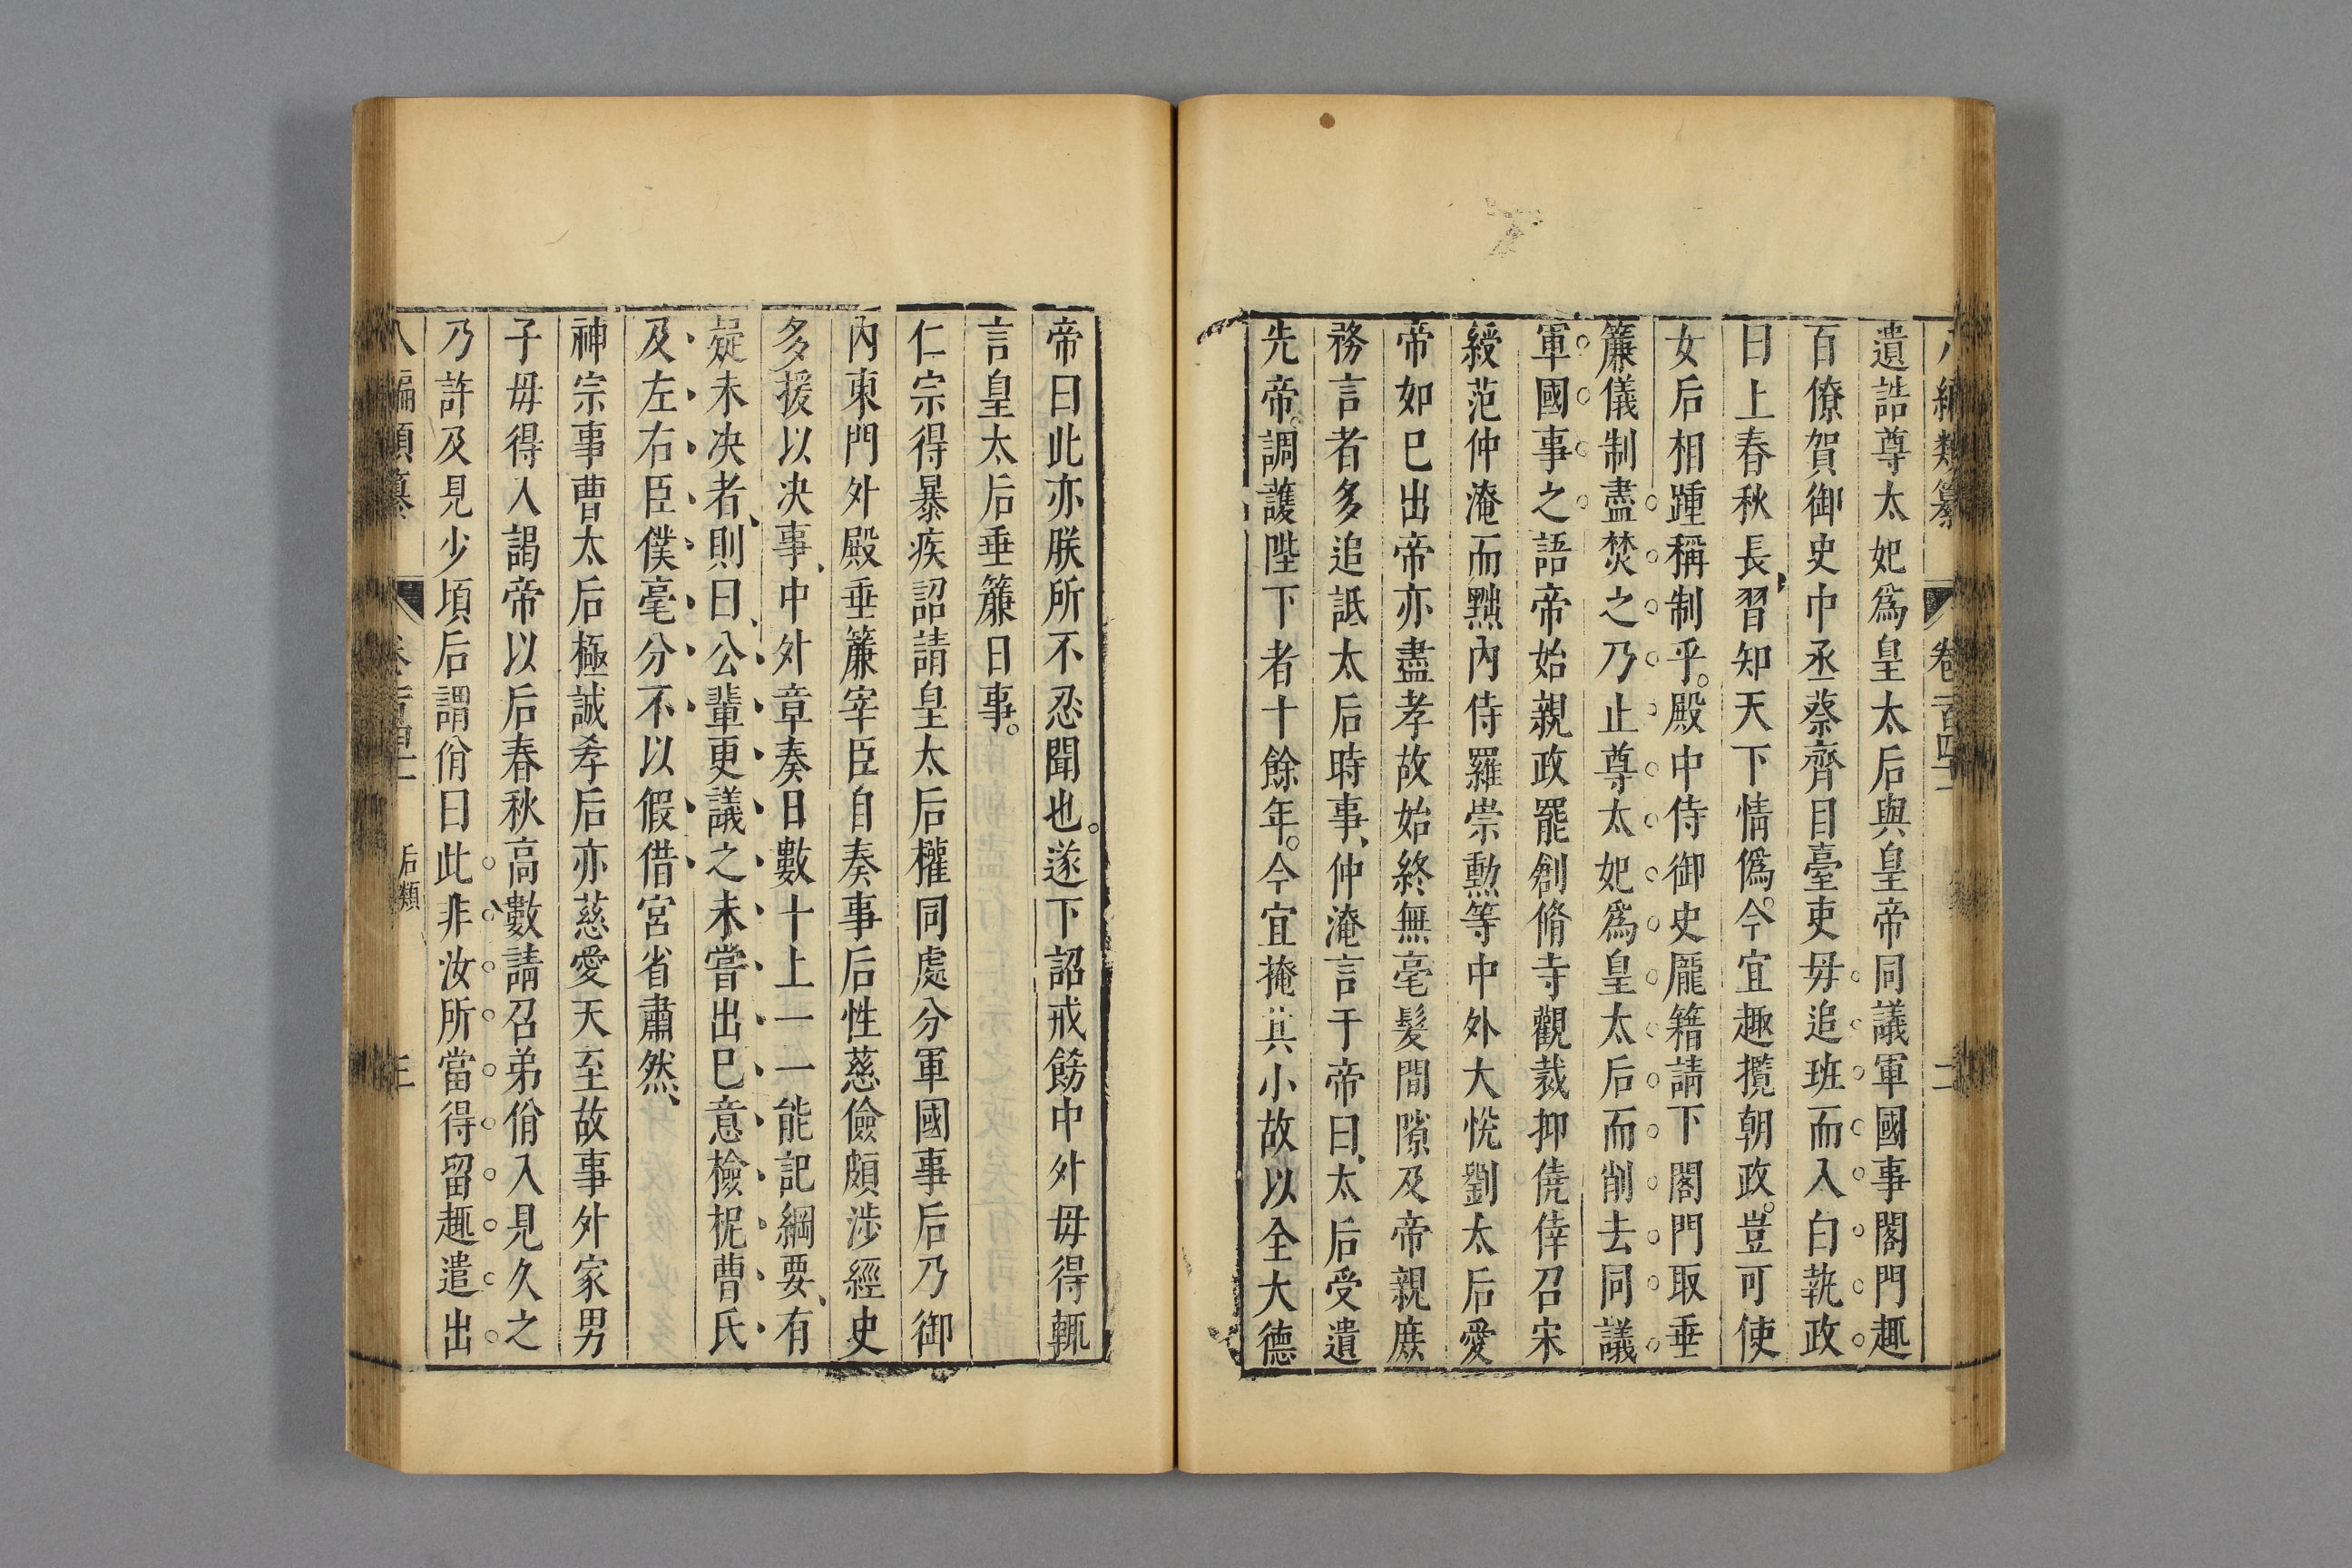 遺誥尊太妃爲皇太后與皇帝同議軍國事閣門趣
百僚賀御史中丞蔡齊目臺吏毋追班而入白執政
曰上春秋長習知天下情僞今宜趣攬朝政豈可使
女后相踵稱制乎殿中侍御史龎籍請下閣門取垂
簾儀制盡焚之乃止尊太妃爲皇太后而削去同議
軍國事之語帝始親政罷創脩寺觀裁抑僥倖召宋
綬范仲淹而黜內侍羅崇勳等中外大悅劉太后愛
帝如已出帝亦盡孝故始終無毫髮間隙及帝親庶
務言者多追詆太后時事仲淹言于帝曰太后受遺
先帝調護陛下者十餘年今宜掩其小故以全大德
帝曰此亦朕所不忍聞也遂下詔戒餝中外毋得輒
言皇太后垂簾日事
仁宗得暴疾詔請皇太后權同處分軍國事后乃御
內東門外殿垂簾宰臣自奏事后性慈儉頗涉經史
多援以决事中外章奏日數十上一一能記綱要有
疑未决者則曰公輩更議之未嘗出巳意檢柅曹氏
及左右臣僕毫分不以假借宮省肅然
神宗事曹太后極誠孝后亦慈愛天至故事外家男
子毋得入謁帝以后春秋高數請召弟佾入見久之
乃許及見少頃后謂佾曰此非汝所當得留趣遣出
八編類纂 卷 后類 三